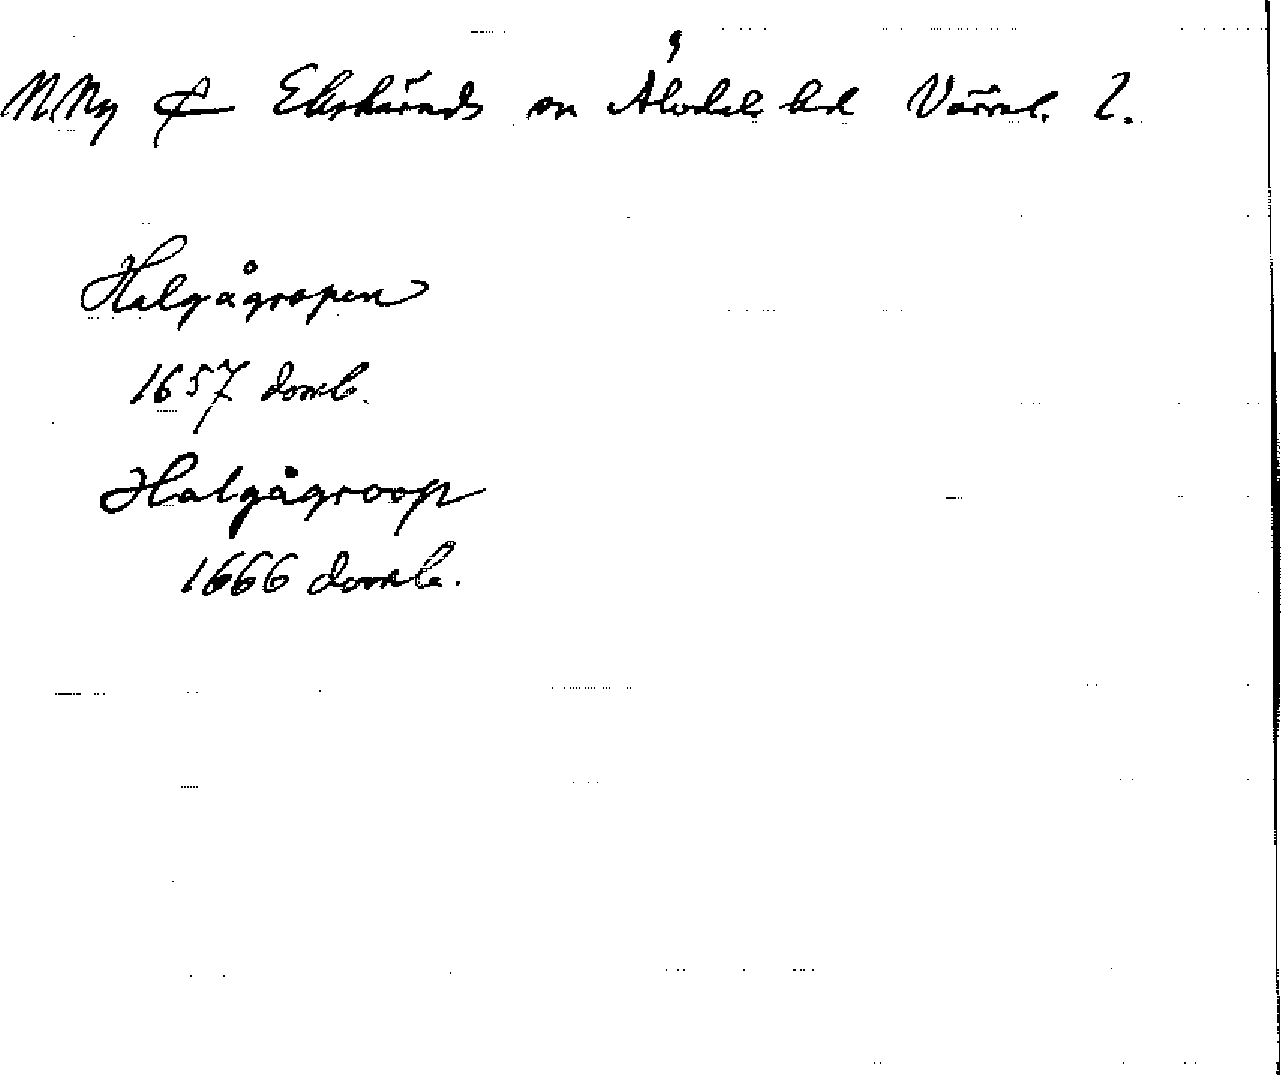 N.Ny Ekshärads sn Älvdals hd Värml. l.
Halgågropen
1657 domb.
Halgågroop
1666 domb.